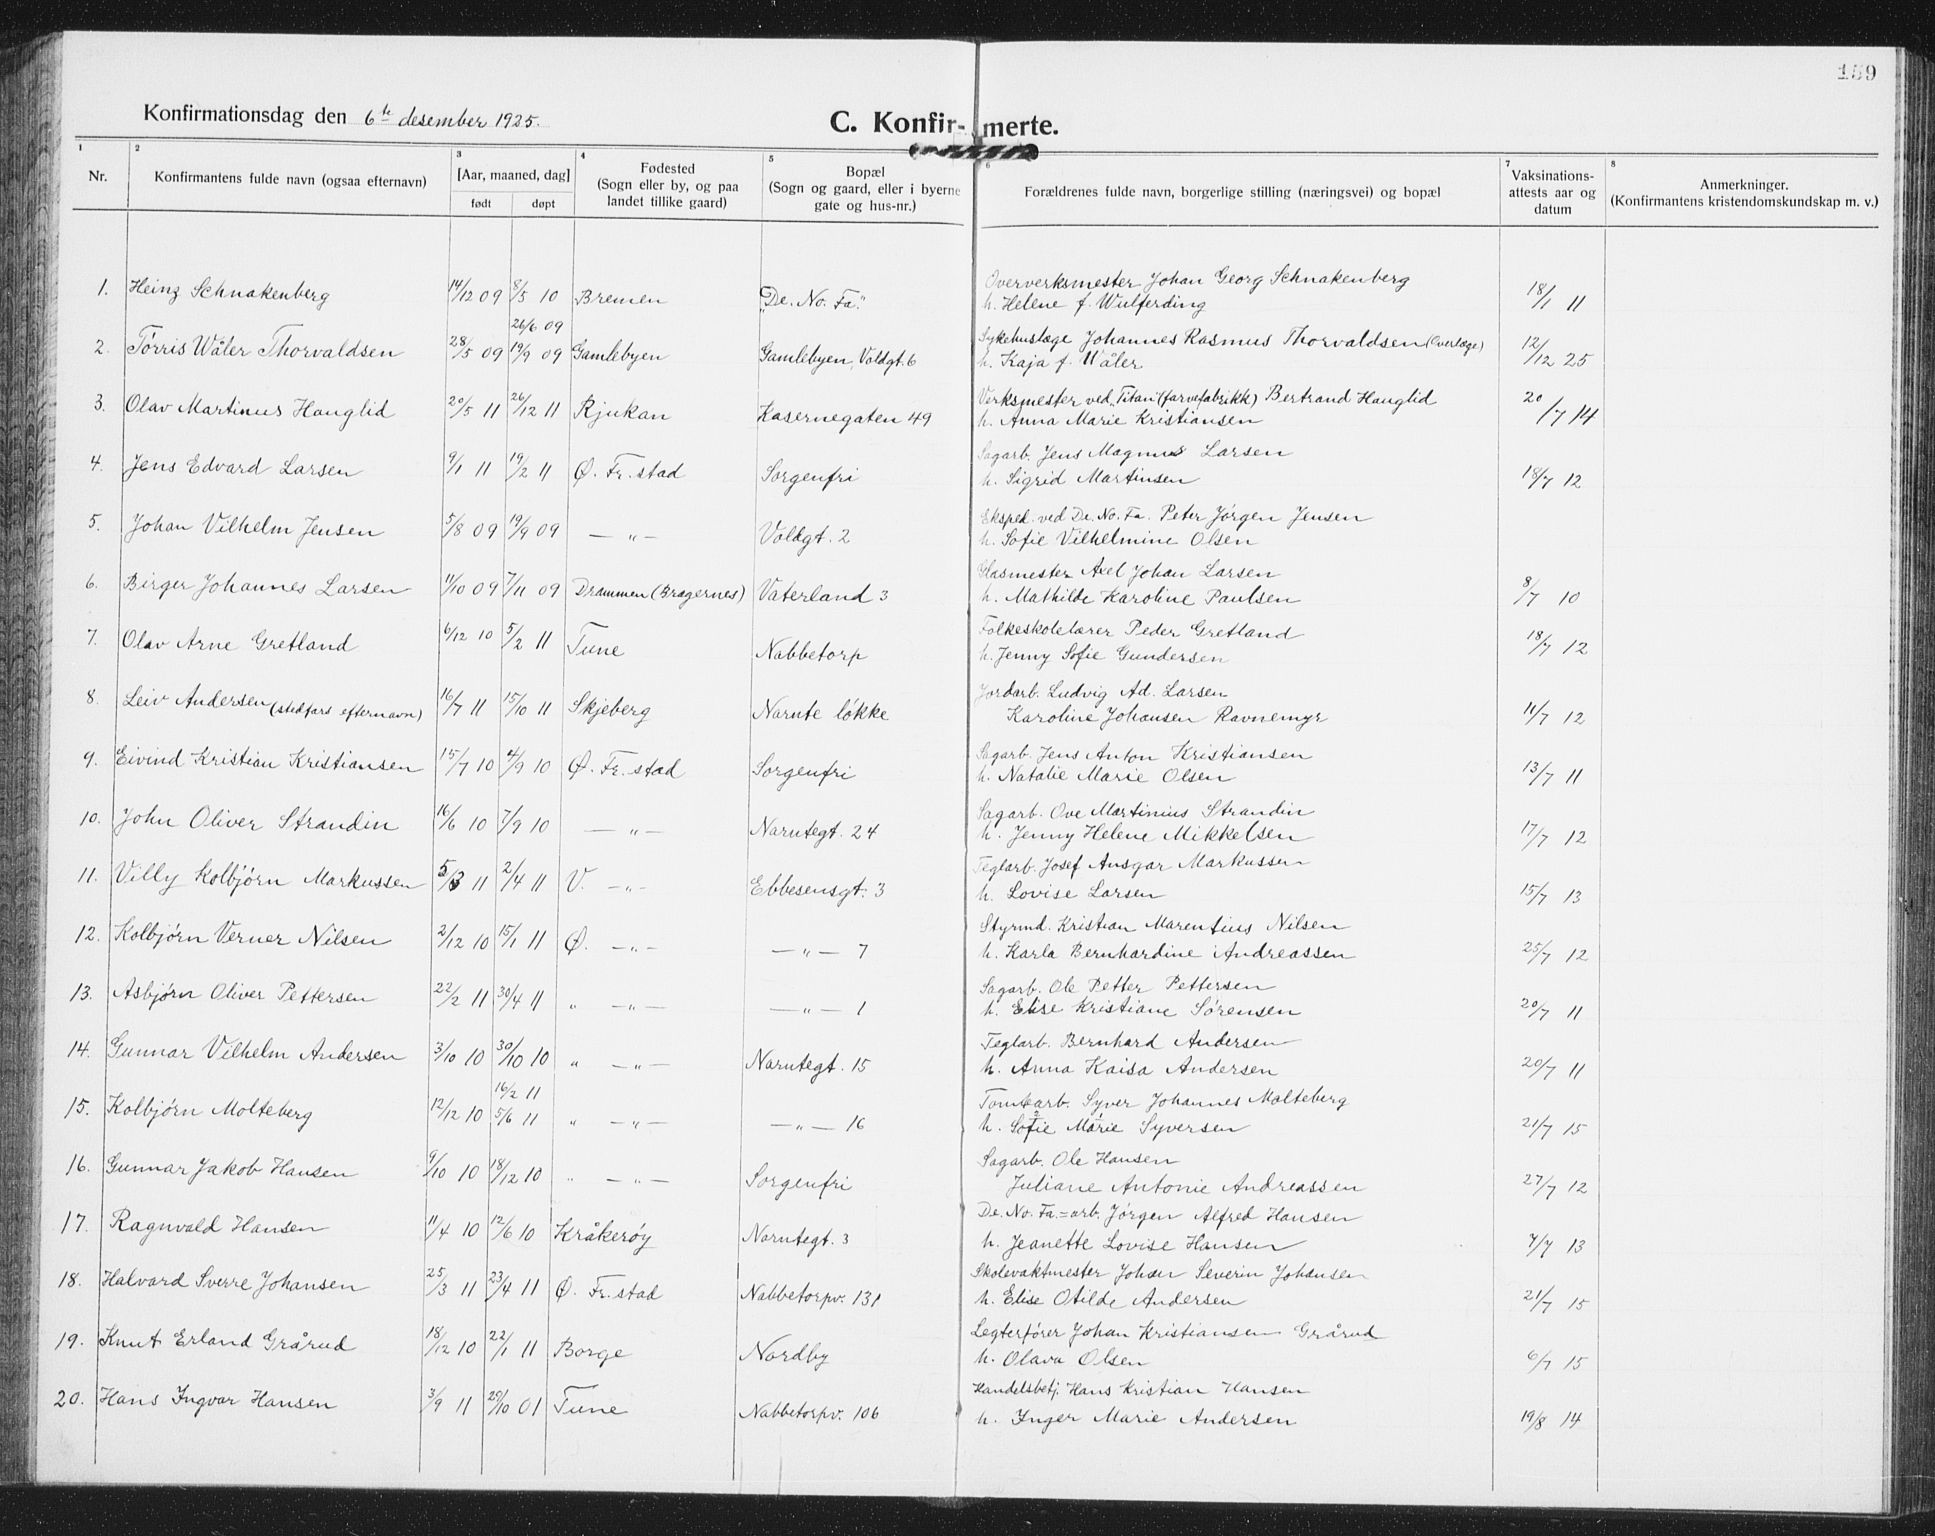 159
Konfirmationsdag den 6te desember 1925.
C. Konfir- merte.
1 2 3 4 5 6 7 8
Nr. Konfirmantens fulde navn (ogsaa efternavn) [Aar, maaned, dag] født døpt Fødested (Sogn eller by, og paa landet tillike gaard) Bopæl (Sogn og gaard, eller i byerne gate og hus-nr.) Forældrenes fulde navn, borgerlige stilling (næringsvei) og bopæl Vaksinations-attests aar og datum Anmerkninger. (Konfirmantens kristendomskundskap m. v.)
1. Heinz Schnakenberg 14/12 09 8/5 10 Bremen "De. No. Fa." Oververksmester Johan Georg Schnakenberg
h. Helene f. Wulferding 18/1 11
26/6 09
2. Tørris Wåler Thorvaldsen 28/5 09 19/9 09 Gamlebyen Gamlebyen, Voldgt. 6 Sykehuslæge Johannes Rasmus Thorvaldsen (Overlæge)
h. Kaja f. Wåler 12/12 25
3. Olav Martinus Hauglid 20/5 11 26/12 11 Rjukan Kasernegaten 49 Verksmester ved "Titan" (farvefabrikk) Bertrand Hauglid
h. Anna Marie Kristiansen 20/7 14
4. Jens Edvard Larsen 9/1 11 19/2 11 Ø. Fr. stad Sorgenfri Sagarb. Jens Magnus Larsen
h. Sigrid Martinsen 18/7 12
5. Johan Vilhelm Jensen 5/8 09 19/9 09 — " — Voldgt. 2 Eksped. ved De. No. Fa. Peter Jörgen Jensen
h. Sofie Vilhelmine Olsen
6. Birger Johannes Larsen 11/10 09 7/11 09 Drammen (Bragernes) Vaterland 3 Glasmester Axel Johan Larsen
h. Mathilde Karoline Paulsen 8/7 10
7. Olav Arne Gretland 6/12 10 5/2 11 Tune Nabbetorp Folkeskolelærer Peder Gretland
h. Jenny Sofie Gundersen 18/7 12
8. Leiv Andersen (stedfars efternavn) 16/7 11 15/10 11 Skjeberg Narnte løkke Jordarb. Ludvig Ad. Larsen
Karoline Johansen Ravnemyr 11/7 12
9. Eivind Kristian Kristiansen 15/7 10 4/9 10 Ø. Fr. stad Sorgenfri Sagarb. Jens Anton Kristiansen
h. Natalie Marie Olsen 13/7 11
10. John Oliver Strandin 16/6 10 7/9 10 — " — Narntegt. 24 Sagarb. Ove Martinius Strandin
h. Jenny Helene Mikkelsen 17/7 12
11. Villy Kolbjørn Markussen 5/3 11 2/4 11 V. — " — Ebbesensgt. 3 Teglarb. Josef Ansgar Markussen
h. Lovise Larsen 15/7 13
12. Kolbjørn Verner Nilsen 2/12 10 15/1 11 Ø. — " — — " — 7 Styrmd. Kristian Marentius Nilsen
h. Karla Bernhardine Andreassen 25/7 12
13. Asbjørn Oliver Pettersen 22/2 11 30/4 11 " — " — — " — 1 Sagarb. Ole Petter Pettersen
h. Elise Kristiane Sörensen 20/7 11
14. Gunnar Vilhelm Andersen 3/10 10 30/10 10 " — " — Narntegt. 15 Teglarb. Bernhard Andersen
h. Anna Kaisa Andersen 20/7 11
16/2 11
15. Kolbjørn Molteberg 12/12 10 5/6 11 " — " — — " — 16 Tomtearb. Syver Johannes Molteberg
h. Sofie Marie Syversen 21/7 15
16. Gunnar Jakob Hansen 9/10 10 18/12 10 " — " — Sorgenfri Sagarb. Ole Hansen
Juliane Antonie Andreassen 27/7 12
17. Ragnvald Hansen 11/4 10 12/6 10 Kråkerøy Narntegt. 3 De. No. Fa.=arb. Jörgen Alfred Hansen
h. Jeanette Lovise Hansen 7/7 13
18. Halvard Sverre Johansen 25/3 11 23/4 11 Ø. Fr. stad Nabbetorpv. 131 Skolevaktmester Johan Severin Johansen
h. Elise Otilde Andersen 21/7 15
19. Knut Erland Grårud 18/12 10 22/1 11 Borge Nordby Legterfører Johan Kristiansen Grårud
h. Olava Olsen 6/7 15
20. Hans Ingvar Hansen 3/9 11 29/10 01 Tune Nabbetorpv. 106 Handelsbetj. Hans Kristian Hansen
h. Inger Marie Andersen 19/8 14